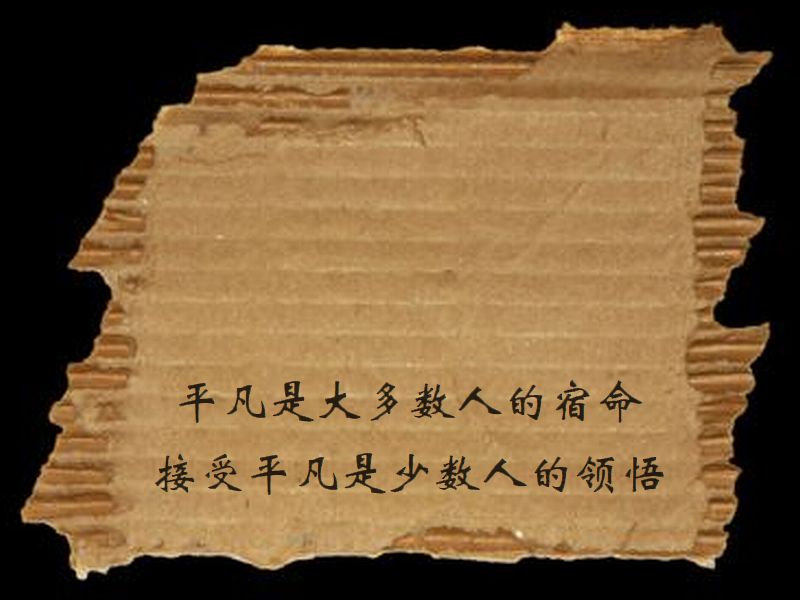 平凡是大多数人的宿命
接受平凡是少数人的领悟